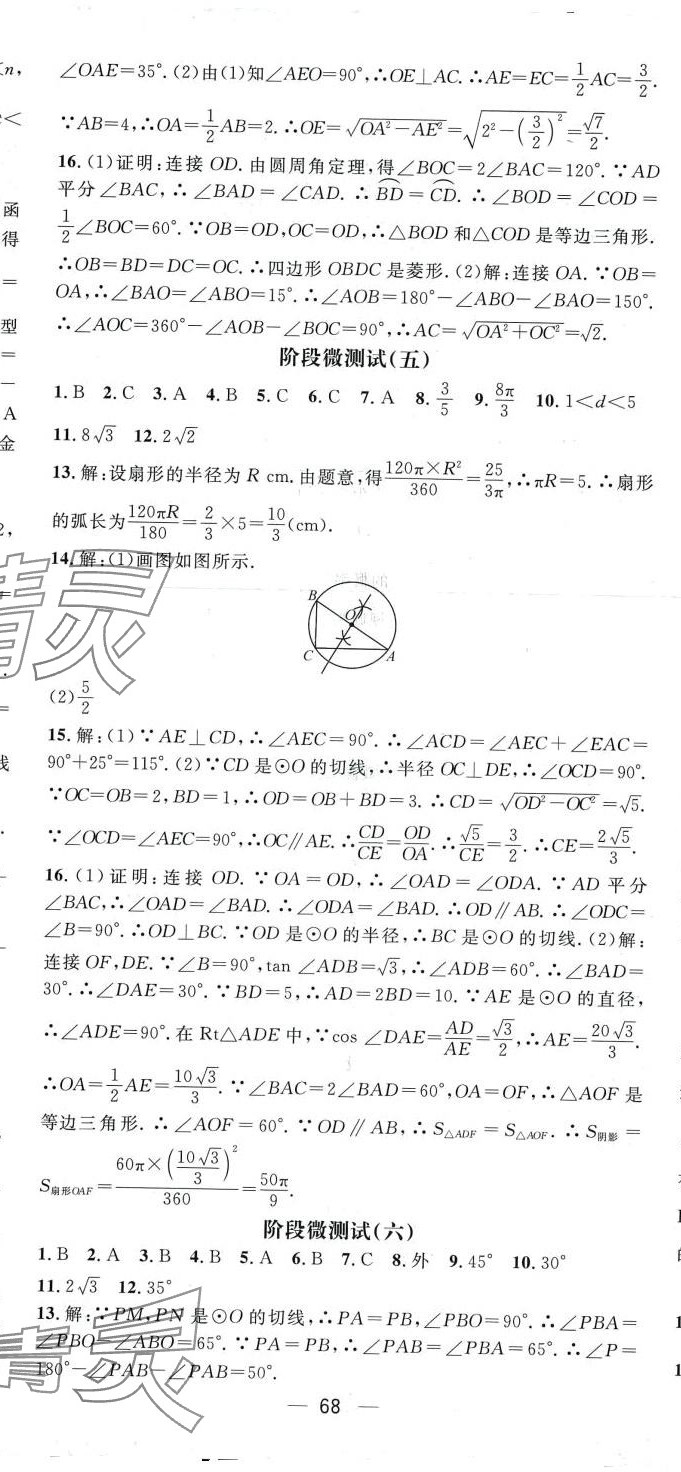 ∠OAE=35°.(2)由(1)知∠AEO=90°,∴OE⊥AC.∴AE=EC=1/2AC=3/2.
∵AB=4,∴OA=1/2AB=2.∴OE=√(OA²-AE²)=√(2²-(3/2)²)=√7/2.
16.(1)证明:连接OD.由圆周角定理,得∠BOC=2∠BAC=120°.∵AD
平分∠BAC,∴∠BAD=∠CAD.∴BD⌒=CD⌒.∴∠BOD=∠COD=
1/2∠BOC=60°.∵OB=OD,OC=OD,∴△BOD和△COD是等边三角形.
∴OB=BD=DC=OC.∴四边形OBDC是菱形.(2)解:连接OA.∵OB=
OA,∴∠BAO=∠ABO=15°.∴∠AOB=180°-∠ABO-∠BAO=150°.
∴∠AOC=360°-∠AOB-∠BOC=90°,∴AC=√(OA²+OC²)=√2.
阶段微测试(五)
1.B 2.C 3.A 4.B 5.C 6.C 7.A 8.3/5 9.8π/3 10.1<d<5
11.8√3 12.2√2
13.解:设扇形的半径为R cm.由题意,得120π×R²/360=25/3π,∴πR=5.∴扇形
的弧长为120πR/180=2/3×5=10/3(cm).
14.解:(1)画图如图所示.
B
O
C
A
(2)5/2
15.解:(1)∵AE⊥CD,∴∠AEC=90°.∴∠ACD=∠AEC+∠EAC=
90°+25°=115°.(2)∵CD是⊙O的切线,∴半径OC⊥DE,∴∠OCD=90°.
∵OC=OB=2,BD=1,∴OD=OB+BD=3.∴CD=√(OD²-OC²)=√5.
∵∠OCD=∠AEC=90°,∴OC∥AE.∴CD/CE=OD/OA.∴√5/CE=3/2.∴CE=2√5/3.
16.(1)证明:连接OD.∵OA=OD,∴∠OAD=∠ODA.∵AD平分
∠BAC,∴∠OAD=∠BAD.∴∠ODA=∠BAD.∴OD∥AB.∴∠ODC=
∠B=90°.∴OD⊥BC.∵OD是⊙O的半径,∴BC是⊙O的切线.(2)解:
连接OF,DE.∵∠B=90°,tan∠ADB=√3,∴∠ADB=60°.∴∠BAD=
30°.∴∠DAE=30°.∵BD=5,∴AD=2BD=10.∵AE是⊙O的直径,
∴∠ADE=90°.在Rt△ADE中,∵cos∠DAE=AD/AE=√3/2,∴AE=20√3/3.
∴OA=1/2AE=10√3/3.∵∠BAC=2∠BAD=60°,OA=OF,∴△AOF是
等边三角形.∴∠AOF=60°.∵OD∥AB,∴S△ADF=S△AOF.∴S阴影=
S扇形OAF=60π×(10√3/3)²/360=50π/9.
阶段微测试(六)
1.B 2.A 3.B 4.B 5.A 6.B 7.C 8.外 9.45° 10.30°
11.2√3 12.35°
13.解:∵PM,PN是⊙O的切线,∴PA=PB,∠PBO=90°.∴∠PBA=
∠PBO-∠ABO=65°.∵PA=PB,∴∠PAB=∠PBA=65°.∴∠P=
180°-∠PAB-∠PAB=50°.
— 68 —